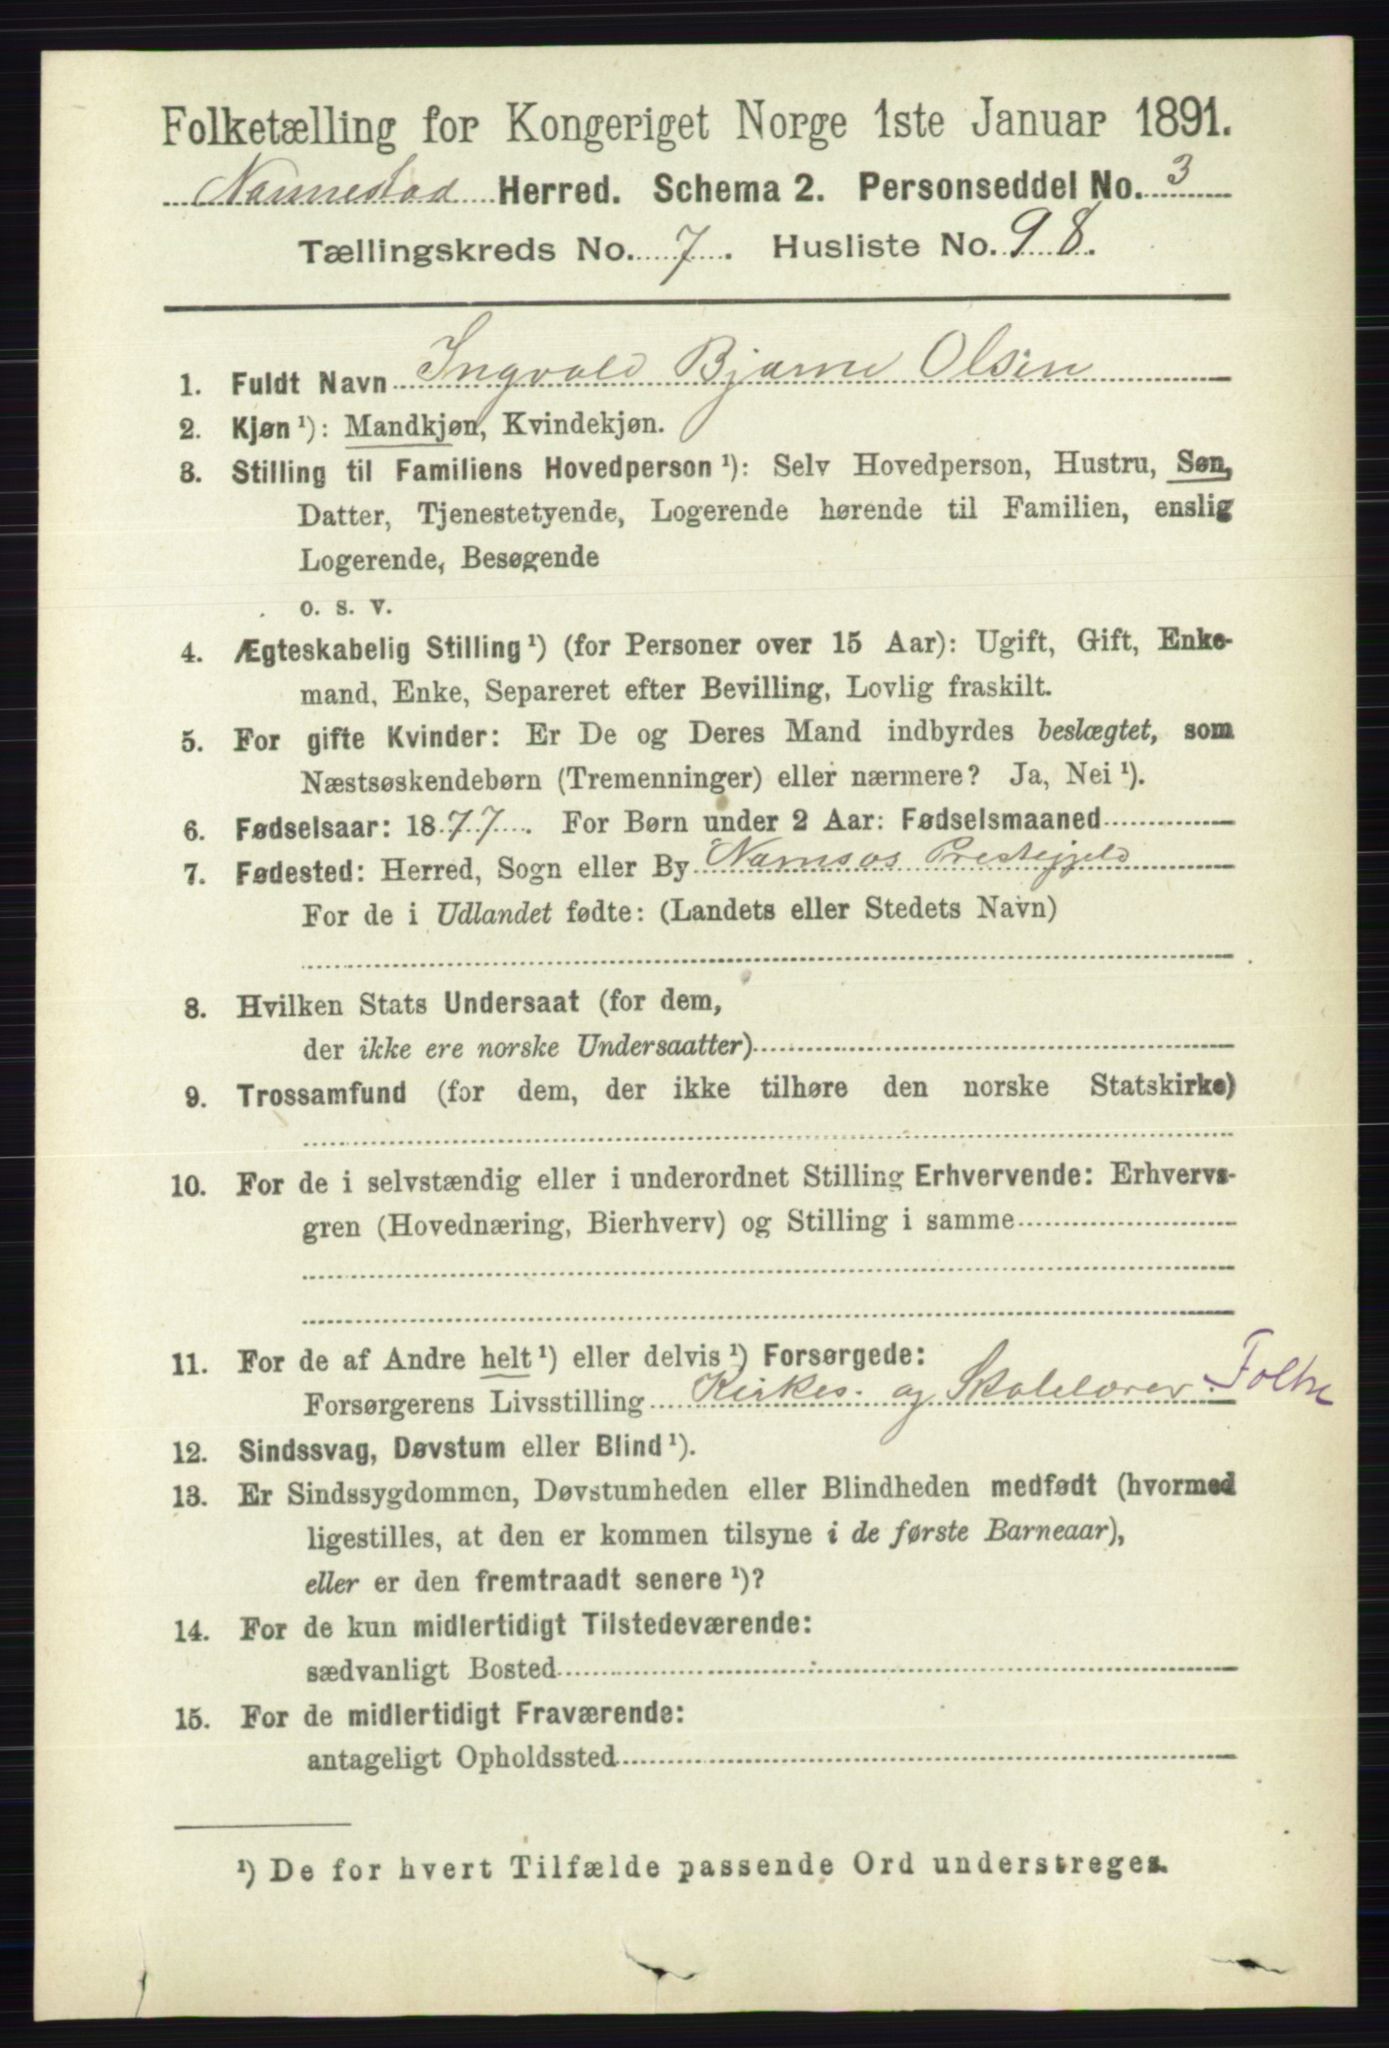 Folketælling for Kongeriget Norge 1ste Januar 1891.
Nannestad Herred. Schema 2. Personseddel No. 3
Tællingskreds No. 7. Husliste No. 98.
1. Fuldt Navn Ingvald Bjarne Olsen
2. Kjøn ¹): Mandkjøn, Kvindekjøn.
3. Stilling til Familiens Hovedperson ¹): Selv Hovedperson, Hustru, Søn,
Datter, Tjenestetyende, Logerende hørende til Familien, enslig
Logerende, Besøgende
o. s. v.
4. Ægteskabelig Stilling ¹) (for Personer over 15 Aar): Ugift, Gift, Enke-
mand, Enke, Separeret efter Bevilling, Lovlig fraskilt.
5. For gifte Kvinder: Er De og Deres Mand indbyrdes beslægtet, som
Næstsøskendebørn (Tremenninger) eller nærmere? Ja, Nei ¹).
6. Fødselsaar: 1877. For Børn under 2 Aar: Fødselsmaaned
7. Fødested: Herred, Sogn eller By Namsos Prestegjeld
For de i Udlandet fødte: (Landets eller Stedets Navn)
8. Hvilken Stats Undersaat (for dem,
der ikke ere norske Undersaatter)
9. Trossamfund (for dem, der ikke tilhøre den norske Statskirke)
10. For de i selvstændig eller i underordnet Stilling Erhvervende: Erhvervs-
gren (Hovednæring, Bierhverv) og Stilling i samme
11. For de af Andre helt ¹) eller delvis ¹) Forsørgede:
Forsørgerens Livsstilling Kirkes. og Skolelærer. Folke
12. Sindssvag, Døvstum eller Blind ¹).
13. Er Sindssygdommen, Døvstumheden eller Blindheden medfødt (hvormed
ligestilles, at den er kommen tilsyne i de første Barneaar),
eller er den fremtraadt senere ¹)?
14. For de kun midlertidigt Tilstedeværende:
sædvanligt Bosted
15. For de midlertidigt Fraværende:
antageligt Opholdssted
¹) De for hvert Tilfælde passende Ord understreges.